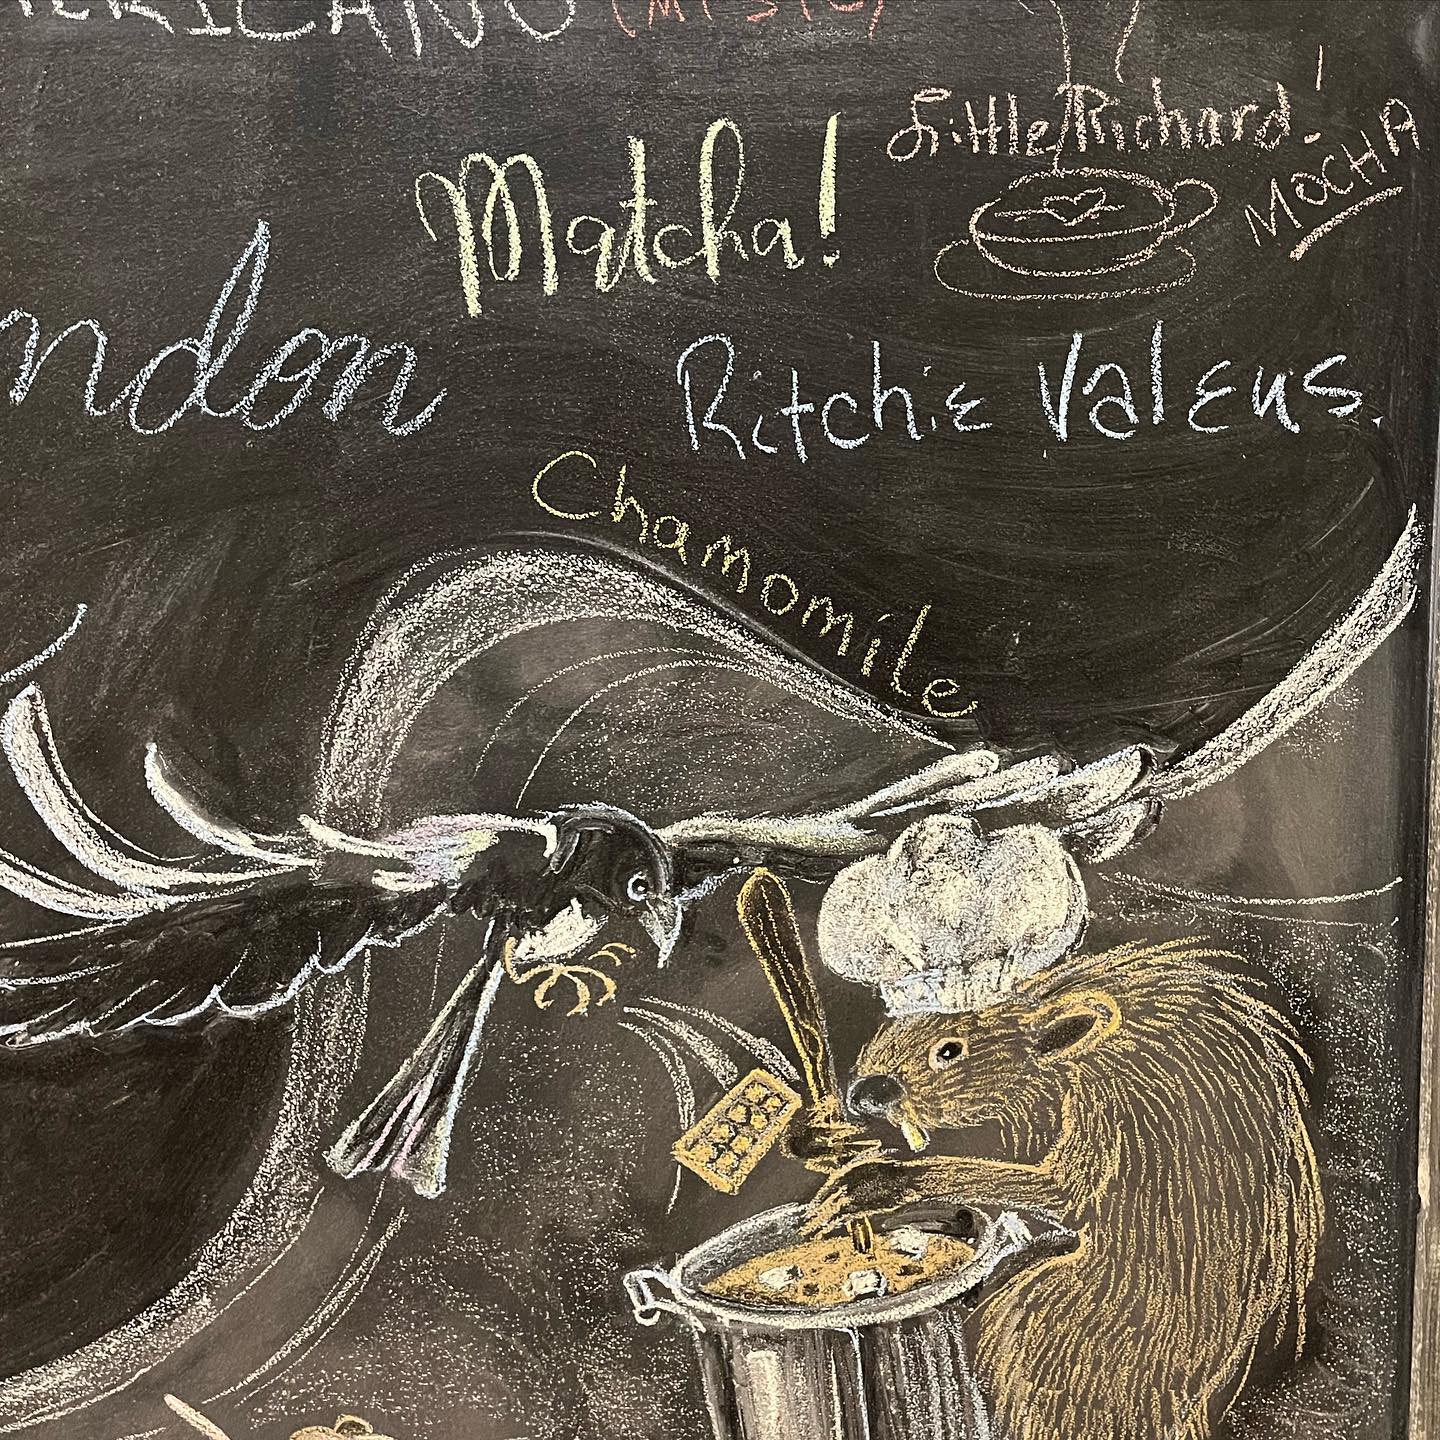 ERICANO (MISTO)
Little Richard!
MOCHA
Matcha!
ndon
Ritchie Valens.
Chamomile